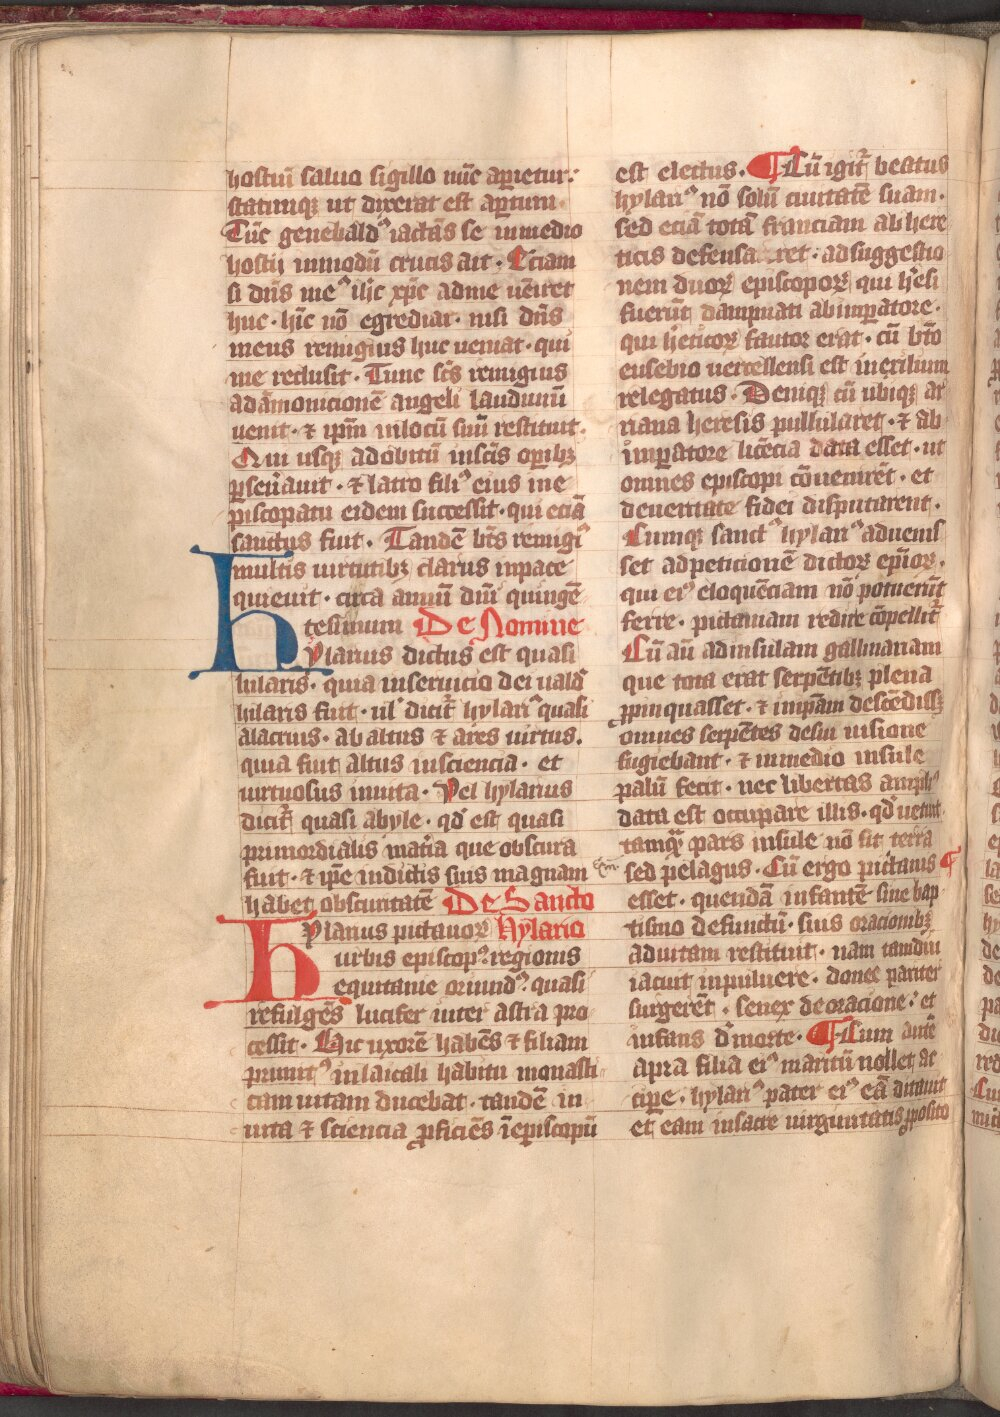 hostiū saluo sigillo nūc aꝑietur:
statimqꝫ ut dixerat est aꝑtum·
Tūc genebaldꝰ iactās se inmedio
hostij inmodū crucis ait· Eciam
si dn̄s meꝰ ih̄c xp̄c adme ueniret
huc· hīc nō egrediar· nisi dn̄s
meus remigius huc ueniat· qui
me reclusit· Tunc scs̄ remigius
adāmonicionē angeli laudunū
uenit· ⁊ ip̄m inlocū suū restituit·
Qui usqꝫ adobitū inscīs oꝑibꝫ
ꝑseūauit· ⁊ latro filiꝰ eius ine
piscopatu eidem successit· qui eciā
sanctus fuit· Tandē bt̄s remigiꝰ
multis uirtutibꝫ clarus inpace
quieuit· circa annū dn̄i quingē
tesimum De Nomine
hylarius dictus est quasi
hilaris· quia inseruicio dei uald̄
hilaris fuit· ul' dicit̄ hylariꝰ quasi
alacrius· ab altus ⁊ ares uirtus.
quia fuit altus insciencia· et
uirtuosus inuita· Vel hylarius
dicit̄ quasi abyle· qd̄ est quasi
primordialis mat̄ia que obscura
fuit· ⁊ ip̄e indictis suis magnam
habet obscuritatē De Sancto
hylarius pictauoꝝ Hylario
urbis episcopꝰ· regionis
equitanie oriundꝰ· quasi
refulgēs lucifer inter astra pro
cessit· Hic uxorē habēs ⁊ filiam
prunitꝰ inlaicali habitu monasti
cam uitam ducebat· tandē in
uita ⁊ sciencia ꝓficiēs īepiscopū
est electus· ¶ Cū igit̄ beatus
hylariꝰ nō solū ciuitatē suam·
sed eciā totā franciam ab here
ticis defensa ret· adsuggestio
nem duoꝝ episcopoꝝ qui h̄esi
fuerūt dampnati abimꝑatore·
qui h̄eticoꝝ fautor erat· cū bt̄o
eusebio uercellensi est inexilium
relegatus· Deniqꝫ cū ubiqꝫ ar
riana heresis pullularet· ⁊ ab
imꝑatore licēcia data esset· ut
omnes episcopi cōuenirēt· et
deueritate fidei disputarent·
Cumqꝫ sanctꝰ hylariꝰ aduenis
set adpeticionē dictoꝝ ep̄ioꝝ·
qui eiꝰ eloquēciam nō potuerūt
ferre· pictauiam redire cōpellit̄
Cū aū adinsulam gallinariam
que tota erat serpētibꝫ plena
ꝓpinquasset· ⁊ inip̄am descēdissꝫ
omnes serpētes desui uisione
fugiebant· ⁊ inmedio insule
palū fecit· nec libertas ampliꝰ
data est occupare illis· qd̄ uetuit·
tamqꝫ pars insule nō sit terra
sed pelagus· Cū ergo pictauis
esset· quendā infantē sine bap
tismo defunctū· suis oracionibꝫ
aduitam restituit· nam tamdiu
iacuit inpuluere· donec pariter
surgerēt· senex deoracione· et
infans d̄ morte· ¶ Cum autē
apra filia eiꝰ maritū nollet ac
ciꝑe· hylariꝰ pater eiꝰ eā ditauit
et eam insacre uirginitatis ꝓposito